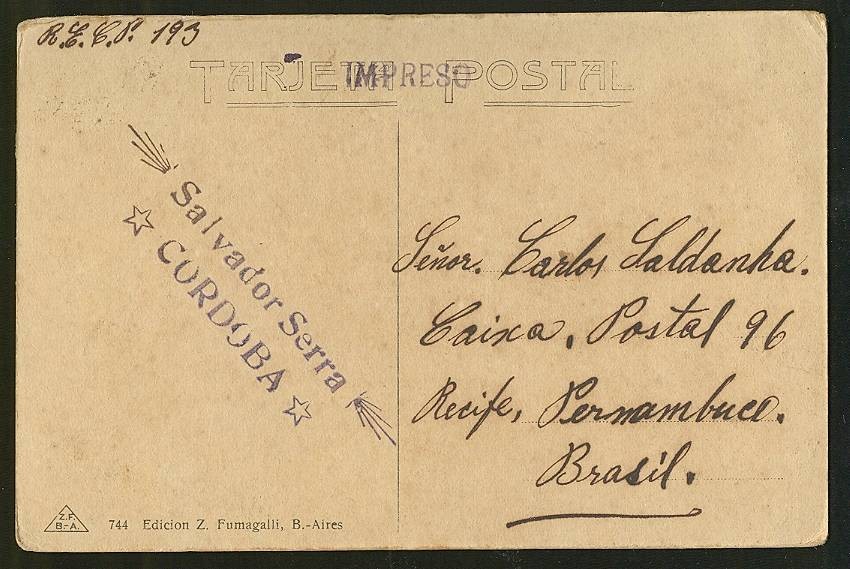 R.E.C.P. 193
TARJETA POSTAL
IMPRESO
Salvador Serra
☆ CORDOBA ☆
Señor. Carlos Saldanha.
Caixa, Postal 96
Recife, Pernambuco.
Brasil.
Z.F.
B.-A.
744 Edicion Z. Fumagalli, B.-Aires